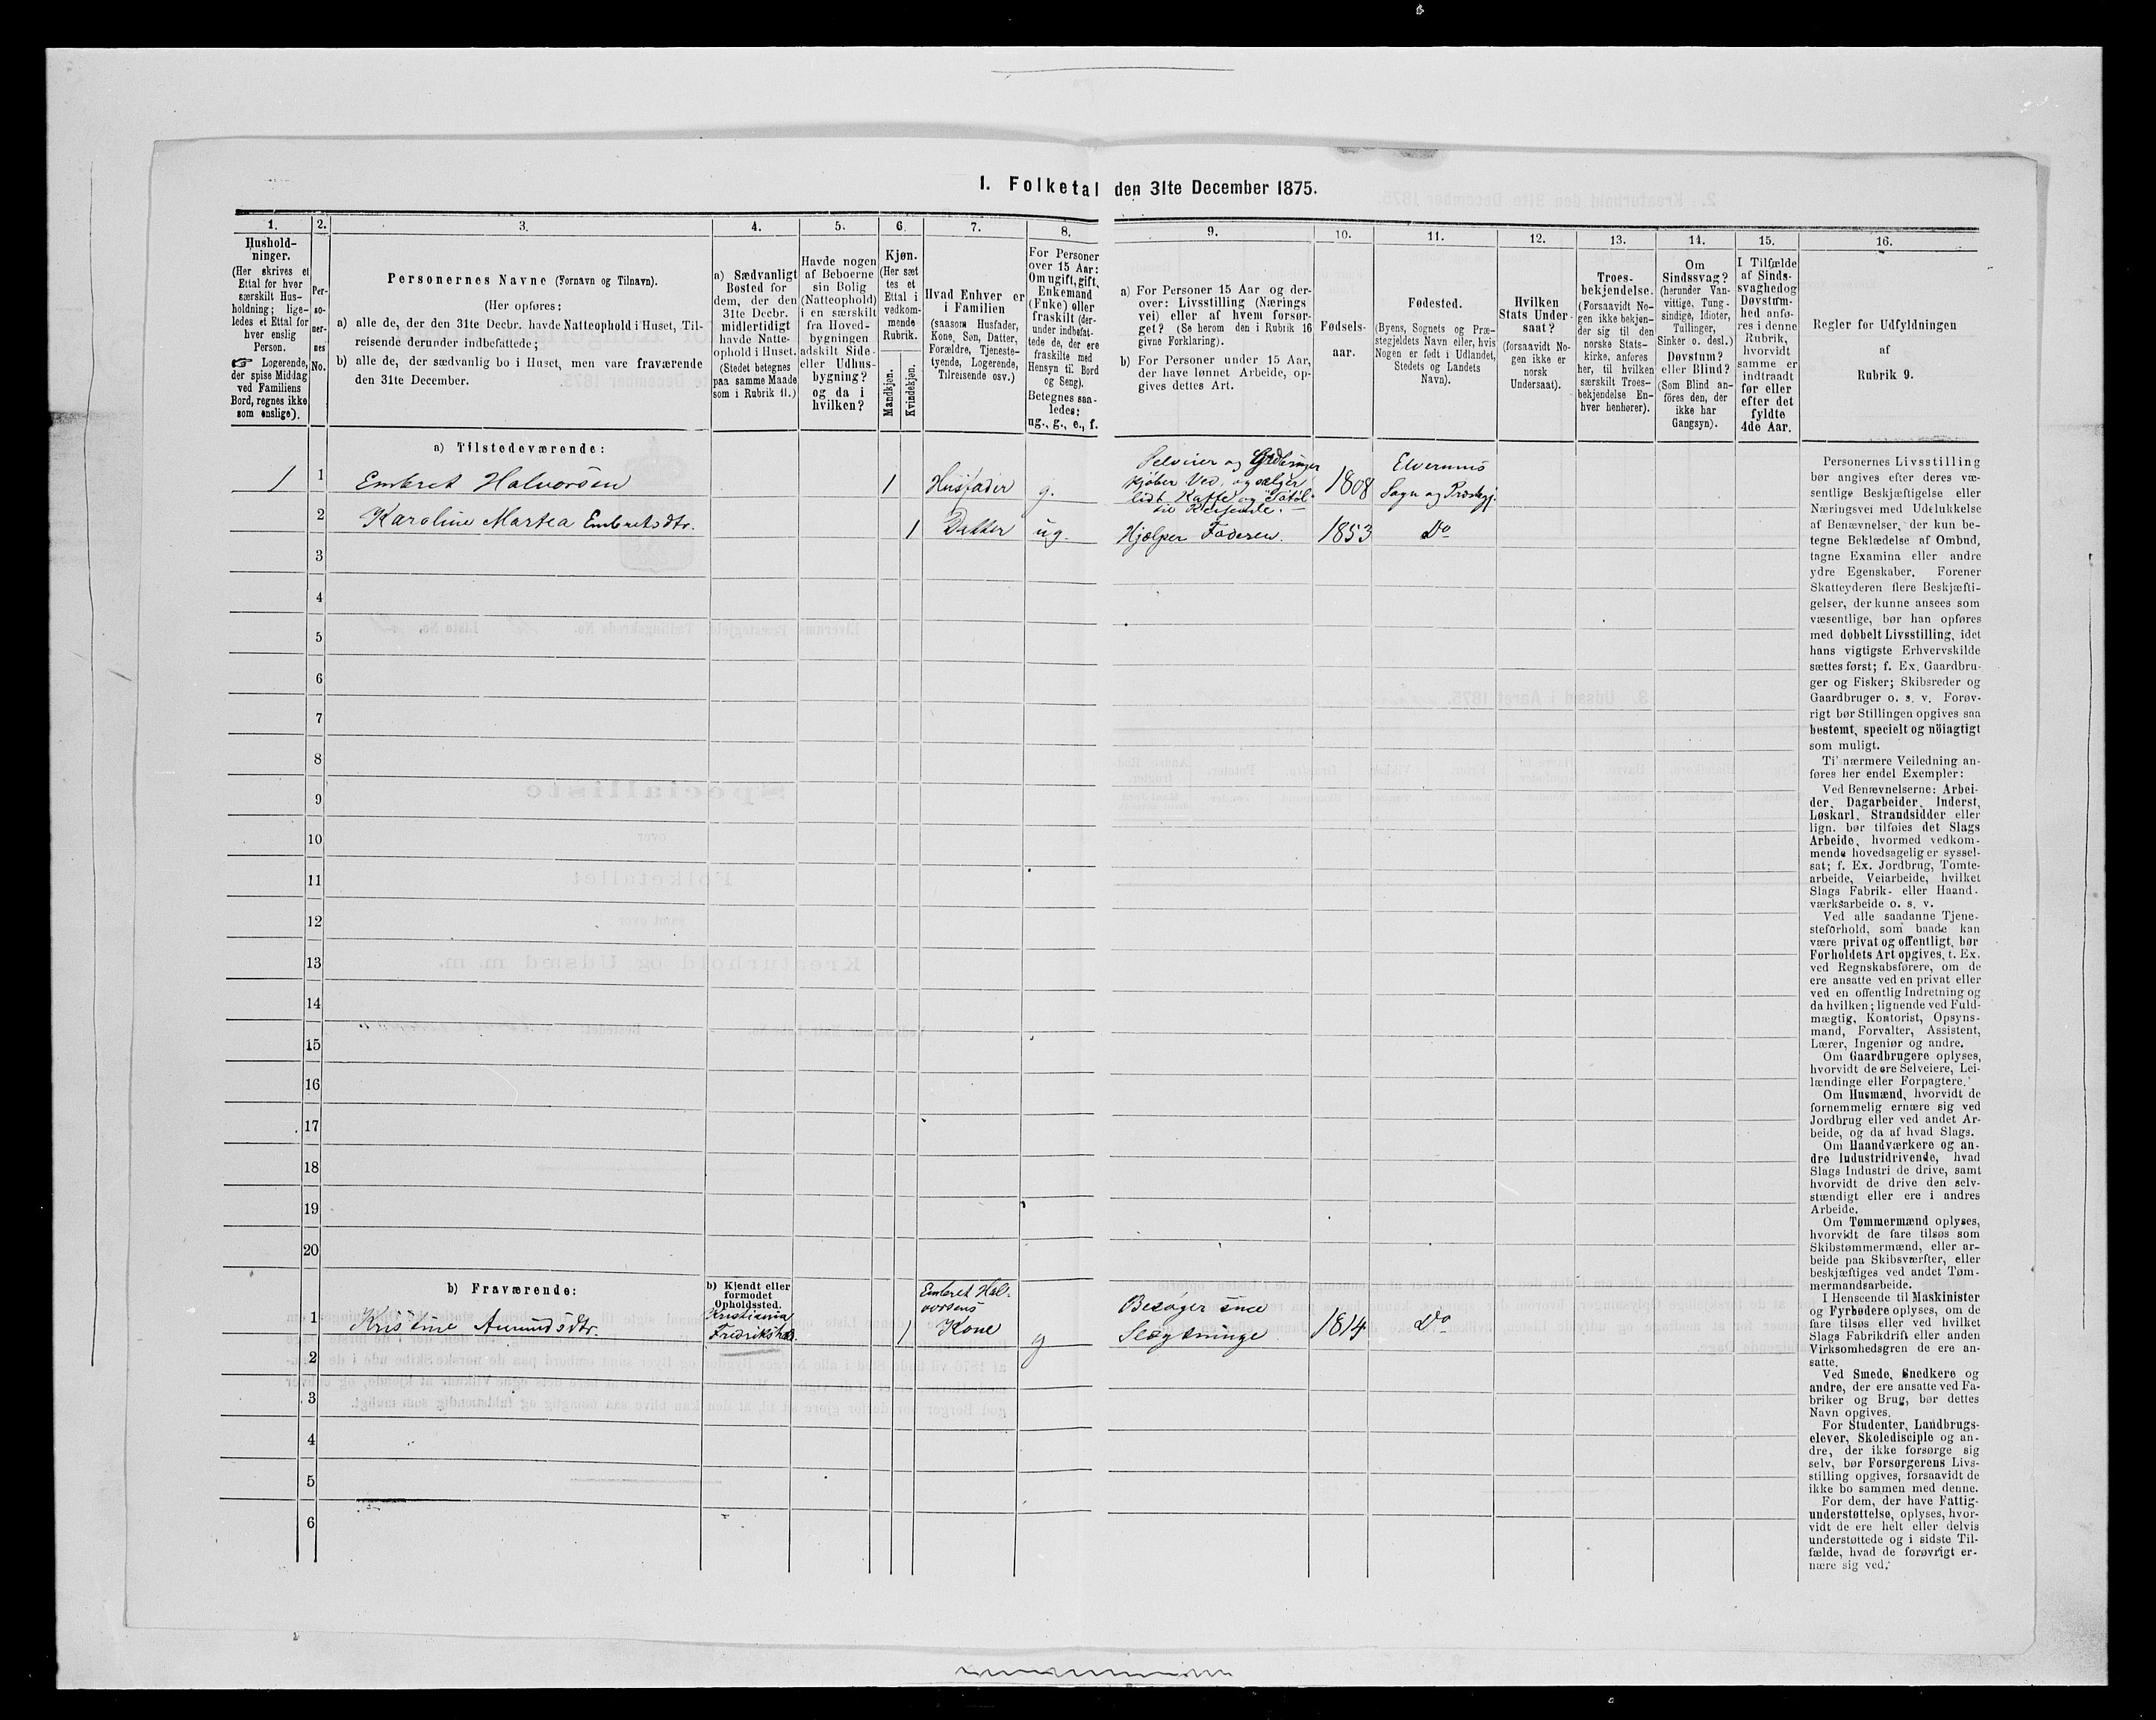 1. Folketal den 31te December 1875.
1.
2.
3.
4.
5.
6.
7.
8.
9.
10.
11.
12.
13.
14.
15.
16.
Hushold-
ninger.
(Her skrives et
Ettal for hver
særskilt Hus-
holdning; lige-
ledes et Ettal for
hver enslig
Person.
☞ Logerende,
der spise Middag
ved Familiens
Bord, regnes ikke
som enslige).
Per-
so-
ner-
nes
No.
Personernes Navne (Fornavn og Tilnavn).
(Her opføres:
a) alle de, der den 31te Decbr. havde Natteophold i Huset, Til-
reisende derunder indbefattede;
b) alle de, der sædvanlig bo i Huset, men vare fraværende
den 31te December.
a) Sædvanligt
Bosted for
dem, der den
31te Decbr.
midlertidigt
havde Natte-
ophold i Huset.
(Stedet betegnes
paa samme Maade
som i Rubrik 11.)
Havde nogen
af Beboerne
sin Bolig
(Natteophold)
i en særskilt
fra Hoved-
bygningen
adskilt Side-
eller Udhus-
bygning?
og da i
hvilken?
Kjøn.
(Her sæt
tes et
Ettal i
vedkom-
mende
Rubrik.
Mandkjøn.
Kvindekjøn.
Hvad Enhver er
i Familien
(saasom Husfader,
Kone, Søn, Datter,
Forældre, Tjeneste-
tyende, Logerende,
Tilreisende osv.)
For Personer
over 15 Aar:
Om ugift, gift,
Enkemand
(Enke) eller
fraskilt (der-
under indbefat-
tede de, der ere
fraskilte med
Hensyn til Bord
og Seng).
Betegnes saa-
ledes:
ug., g., e., f.
a) For Personer 15 Aar og der-
over: Livsstilling (Nærings
vei) eller af hvem forsør-
get? (Se herom den i Rubrik 16
givne Forklaring).
b) For Personer under 15 Aar,
der have lønnet Arbeide, op-
gives dettes Art.
Fødsels-
aar.
Fødested.
(Byens, Sognets og Præ-
stegjeldets Navn eller, hvis
Nogen er født i Udlandet,
Stedets og Landets
Navn).
Hvilken
Stats Under-
saat?
(forsaavidt No-
gen ikke er
norsk
Undersaat).
Troes-
bekjendelse.
(Forsaavidt No-
gen ikke bekjen-
der sig til den
norske Stats-
kirke, anføres
her, til hvilken
særskilt Troes-
bekjendelse En-
hver henhører).
Om
Sindssvag?
(herunder Van-
vittige, Tung-
sindige, Idioter,
Tullinger,
Sinker o. desl.)
Døvstum?
eller Blind?
(Som Blind an-
föres den, der
ikke har
Gangsyn).
I Tilfælde
af Sinds-
svaghed og
Døvstum-
hed anfø-
res i denne
Rubrik,
hvorvidt
samme er
indtraadt
før eller
efter det
fyldte
4de Aar.
Regler for Udfyldningen
af
Rubrik 9.
a) Tilstedeværende:
1 1 Embret Halvorsen 1 Husfader g. Selveier og Grdbruger
kjøber Ved, og sælger
lidt Kaffe og
til Reisende. 1808 Elverums
Sogn og Præstegj.
2 Karoline Martea Embretsdtr. 1 Datter ug. Hjælper Faderen. 1853 Do
3
4
5
6
7
8
9
10
11
12
13
14
15
16
17
18
19
20
b) Fraværende:
b) Kjendt eller
formodet
Opholdssted.
1 Kristine Amundsdtr. Kristiania
1 Embret Hal-
vorsens
Kone g Besøger sine
Slegtninge 1814 Do
2
3
4
5
6
Personernes Livsstilling
bør angives efter deres væ-
sentlige Beskjæftigelse eller
Næringsvei med Udelukkelse
af Benævnelser, der kun be-
tegne Beklædelse af Ombud,
tagne Examina eller andre
ydre Egenskaber. Forener
Skatteyderen flere Beskjæfti-
gelser, der kunne ansees som
væsentlige, bør han opføres
med dobbelt Livsstilling, idet
hans vigtigste Erhvervskilde
sættes først; f. Ex. Gaardbru-
ger og Fisker; Skibsreder og
Gaardbruger o. s. v. Forøv-
rigt bør Stillingen opgives saa
bestemt, specielt og nöiagtigt
som muligt.
Til nærmere Veiledning an-
føres her endel Exempler:
Ved Benævnelserne: Arbei-
der, Dagarbeider, Inderst,
Løskarl, Strandsidder eller
lign. bør tilføies det Slags
Arbeide, hvormed vedkom-
mende hovedsagelig er syssel-
sat; f. Ex. Jordbrug, Tomte-
arbeide, Veiarbeide, hvilket
Slags Fabrik- eller Haand-
værksarbeide o. s. v.
Ved alle saadanne Tjene-
steforhold, som baade kan
være privat og offentligt, bør
Forholdets Art opgives, f. Ex.
ved Regnskabsførere, om de
ere ansatte ved en privat eller
ved en offentlig Indretning og
da hvilken; lignende ved Fuld-
mægtig, Kontorist, Opsyns-
mand, Forvalter, Assistent,
Lærer, Ingeniør og andre.
Om Gaardbrugere oplyses,
hvorvidt de ere Selveiere, Lei-
lændinge eller Forpagtere.
Om Husmænd, hvorvidt de
fornemmelig ernære sig ved
Jordbrug eller ved andet Ar-
beide, og da af hvad Slags.
Om Haandværkere og an-
dre Industridrivende, hvad
Slags Industri de drive, samt
hvorvidt de drive den selv-
stændigt eller ere i andres
Arbeide.
Om Tømmermænd oplyses,
hvorvidt de fare tilsøs som
Skibstømmermænd, eller ar-
beide paa Skibsværfter, eller
beskjæftiges ved andet Tøm-
mermandsarbeide.
I Henseende til Maskinister
og Fyrbødere oplyses, om de
fare tilsøs eller ved hvilket
Slags Fabrikdrift eller anden
Virksomhedsgren de ere an-
satte.
Ved Smede, Snedkere og
andre, der ere ansatte ved Fa-
briker og Brug, bør dettes
Navn opgives.
For Studenter, Landbrugs-
elever, Skoledisciple og an-
dre, der ikke forsørge sig
selv, bør Forsørgerens Livs-
stilling opgives, forsaavidt de
ikke bo sammen med denne.
For dem, der have Fattig-
understøttelse, oplyses, hvor-
vidt de ere helt eller delvis
understøttede og i sidste Til-
fælde, hvad de forøvrigt er-
nære sig ved.